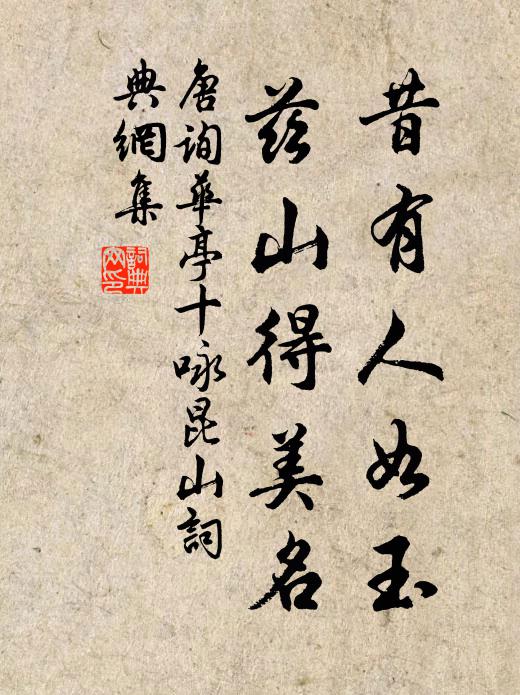 昔有人如玉
茲山得美名
唐詢華亭十咏昆山詞
典網集
詞典網印